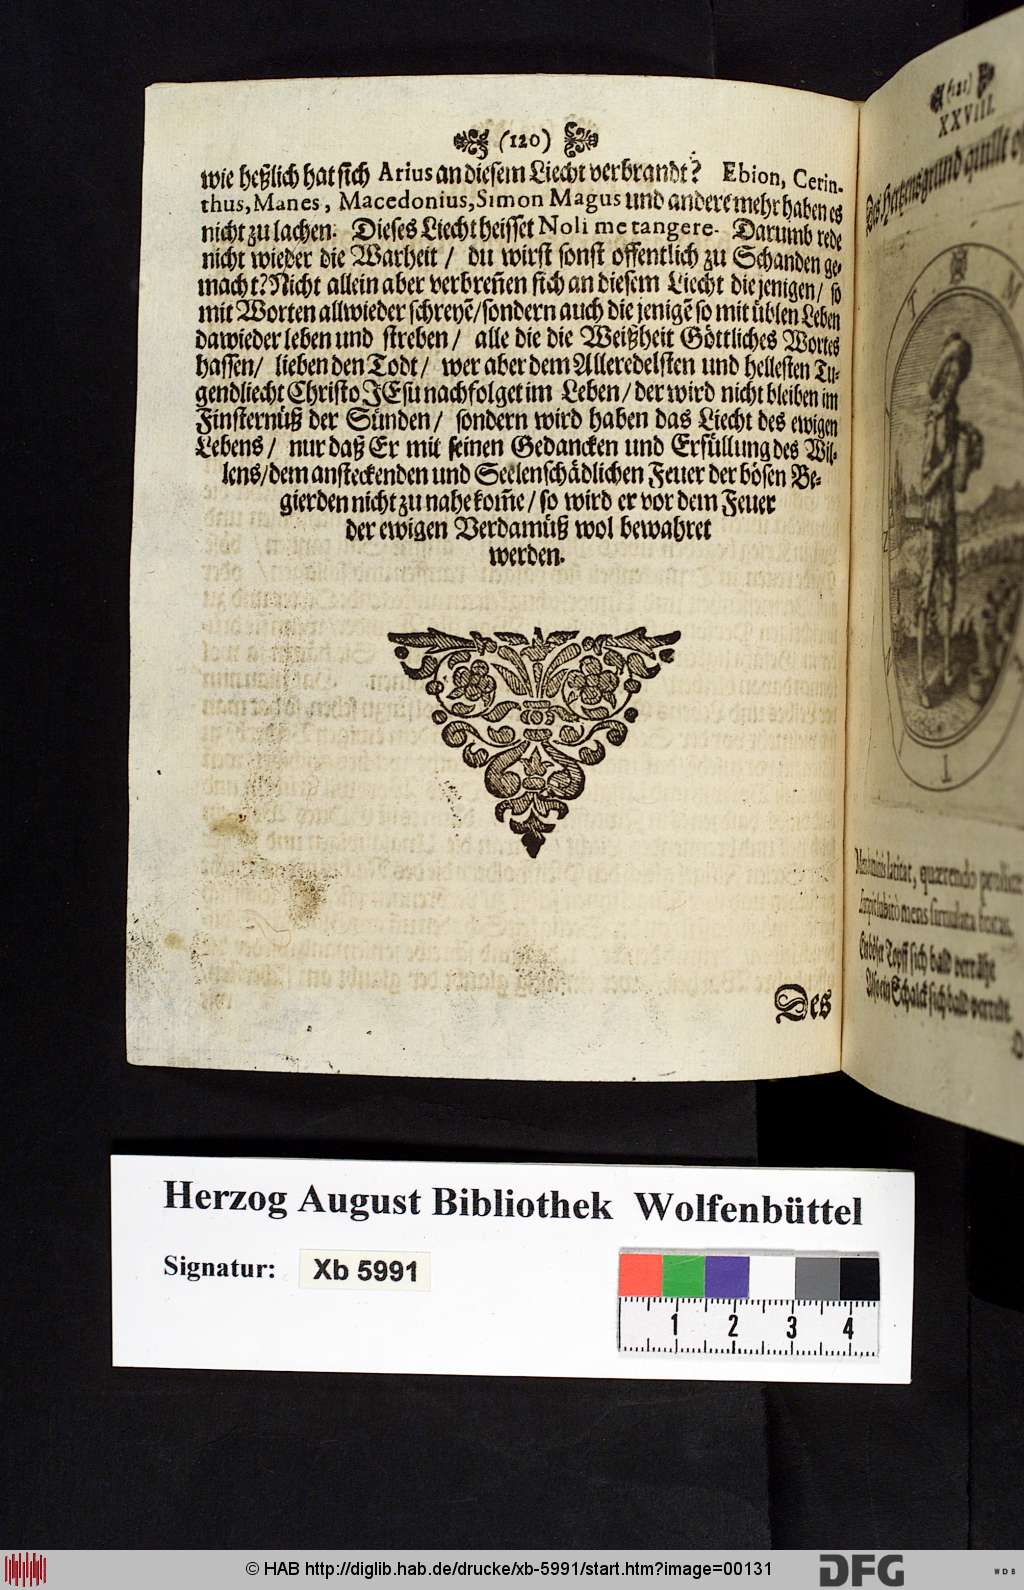 (120)
wie heßlich hat sich Arius an diesem Liecht verbrandt? Ebion, Cerin-
thus, Manes, Macedonius, Simon Magus und andere mehr haben es
nicht zu lachen. Dieses Liecht heisset Noli me tangere. Darumb rede
nicht wieder die Warheit / du wirst sonst offentlich zu Schanden ge-
macht? Nicht allein aber verbreñen sich an diesem Liecht die jenigen / so
mit Worten allwieder schreyẽ / sondern auch die jenigẽ so mit üblen Leben
dawieder leben und streben / alle die die Weißheit Göttliches Wortes
hassen / lieben den Todt / wer aber dem Alleredelsten und hellesten Tu-
gendliecht Christo JEsu nachfolget im Leben / der wird nicht bleiben im
Finsternüß der Sünden / sondern wird haben das Liecht des ewigen
Lebens / nur daß Er mit seinen Gedancken und Erfüllung des Wil-
lens / dem ansteckenden und Seelenschädlichen Feuer der bösen Be-
gierden nicht zu nahe kom̃e / so wird er vor dem Feuer
der ewigen Verdamüß wol bewahret
werden.
Des
(121)
XXVIII.
Des Hertzens grund quillt
T M
Z
T
latitat, quærendo
mens simulata
böser Topff sich bald verräht
Schalck sich bald verredt
Herzog August Bibliothek Wolfenbüttel
Signatur: Xb 5991
1 2 3 4
© HAB http://diglib.hab.de/drucke/xb-5991/start.htm?image=00131
DFG
WDB